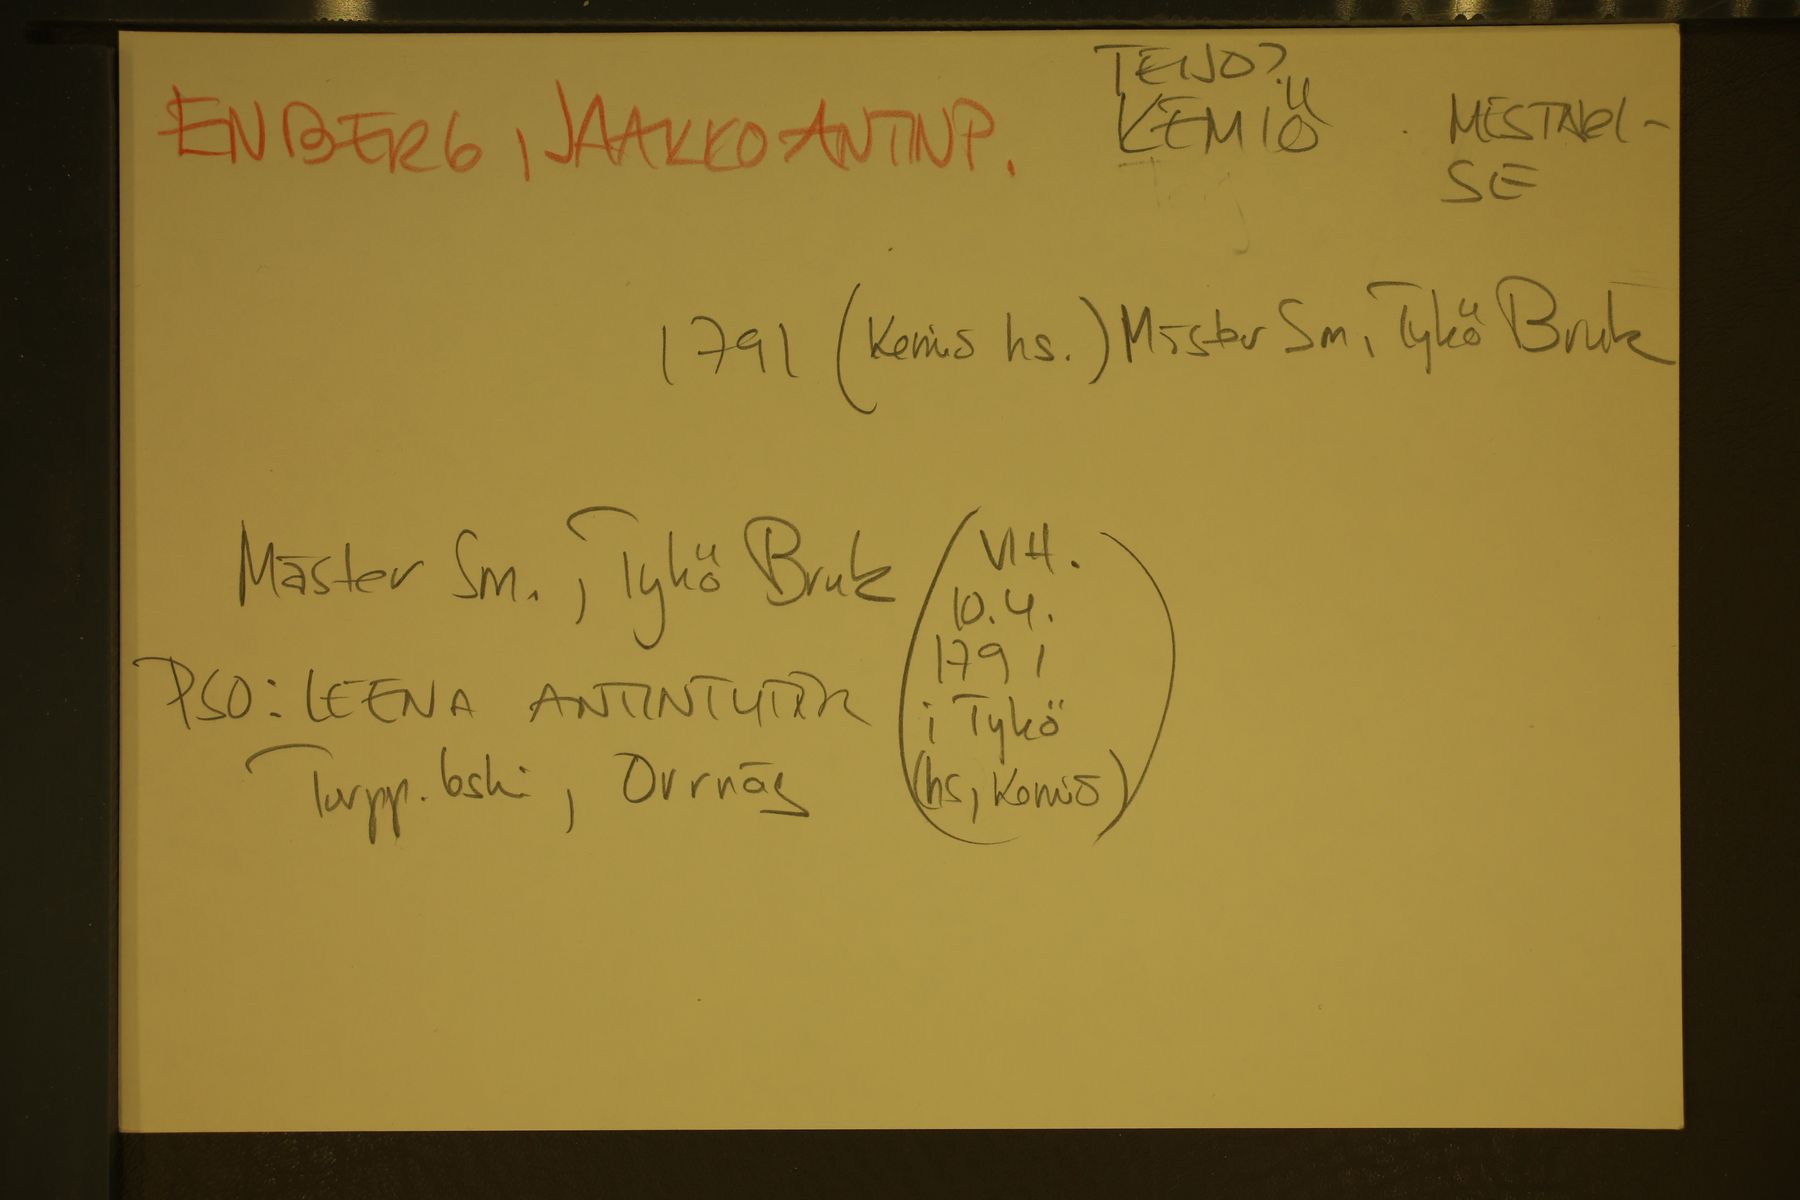 ENBERG, JAAKKO ANTINP.
TEIJO?
KEMIÖ
MESTARI-
SE
1791 (Kemiö hs.) Mäster Sm, Tykö Bruk
Mäster Sm., Tykö Bruk
PSO: LEENA ANTINTYTÄR
Torpp. lski, Orrnäs
(VIH.
10.4.
1791
i Tykö
(hs, Kemiö)